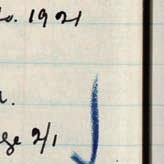 o. 1921
ge 2/1